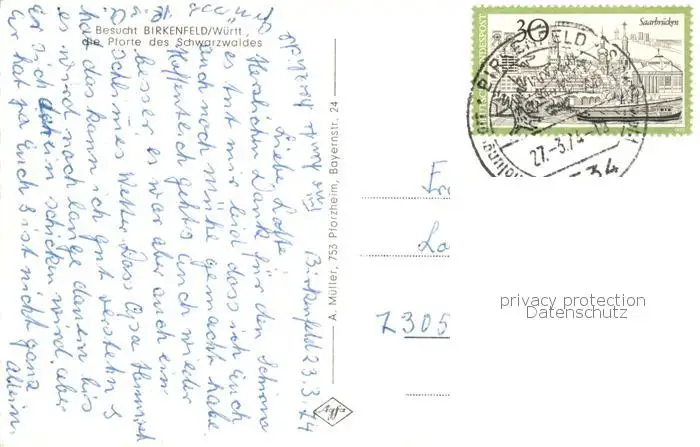 Besucht BIRKENFELD/Württ.,
die Pforte des Schwarzwaldes
Birkenfeld 23.3.74
Liebe Lotte
Herzlichen Dank für den Schöne
es tut mir leid dass ich Euch
auch noch mühe gemacht habe.
Hoffentlich gehts Euch wieder
besser es war aber auch ein
schlimmes Wetter. Dass Opa Heimweh
hat das kann ich gut verstehn
es wird noch lange dauern bis
Er sich drein schicken wird aber
Er hat ja Euch & ist nicht ganz
allein.
A. Müller, 753 Pforzheim, Bayernstr. 24
Agfa
DEUTSCHE BUNDESPOST
30
Saarbrücken
BIRKENFELD
27.-3.74
Z305
privacy protection
Datenschutz